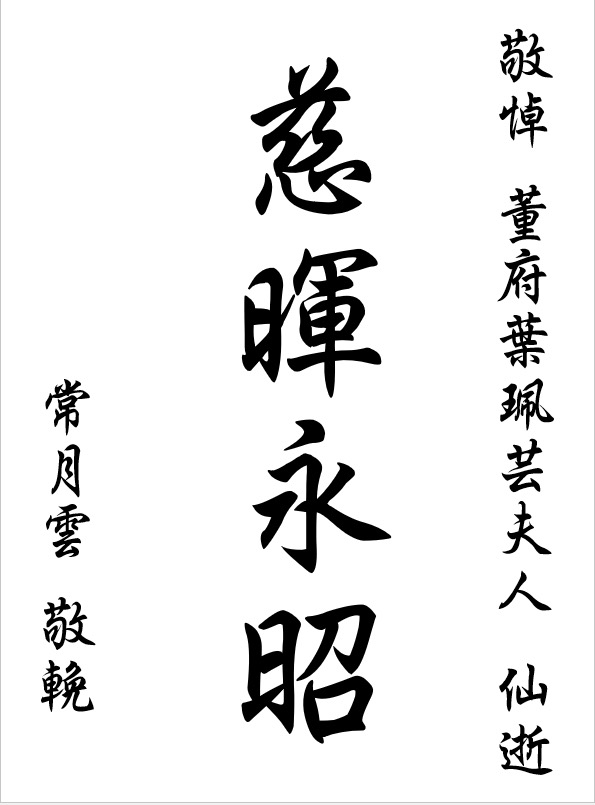 敬悼 董府葉珮芸夫人 仙逝
慈暉永昭
常月雲 敬輓